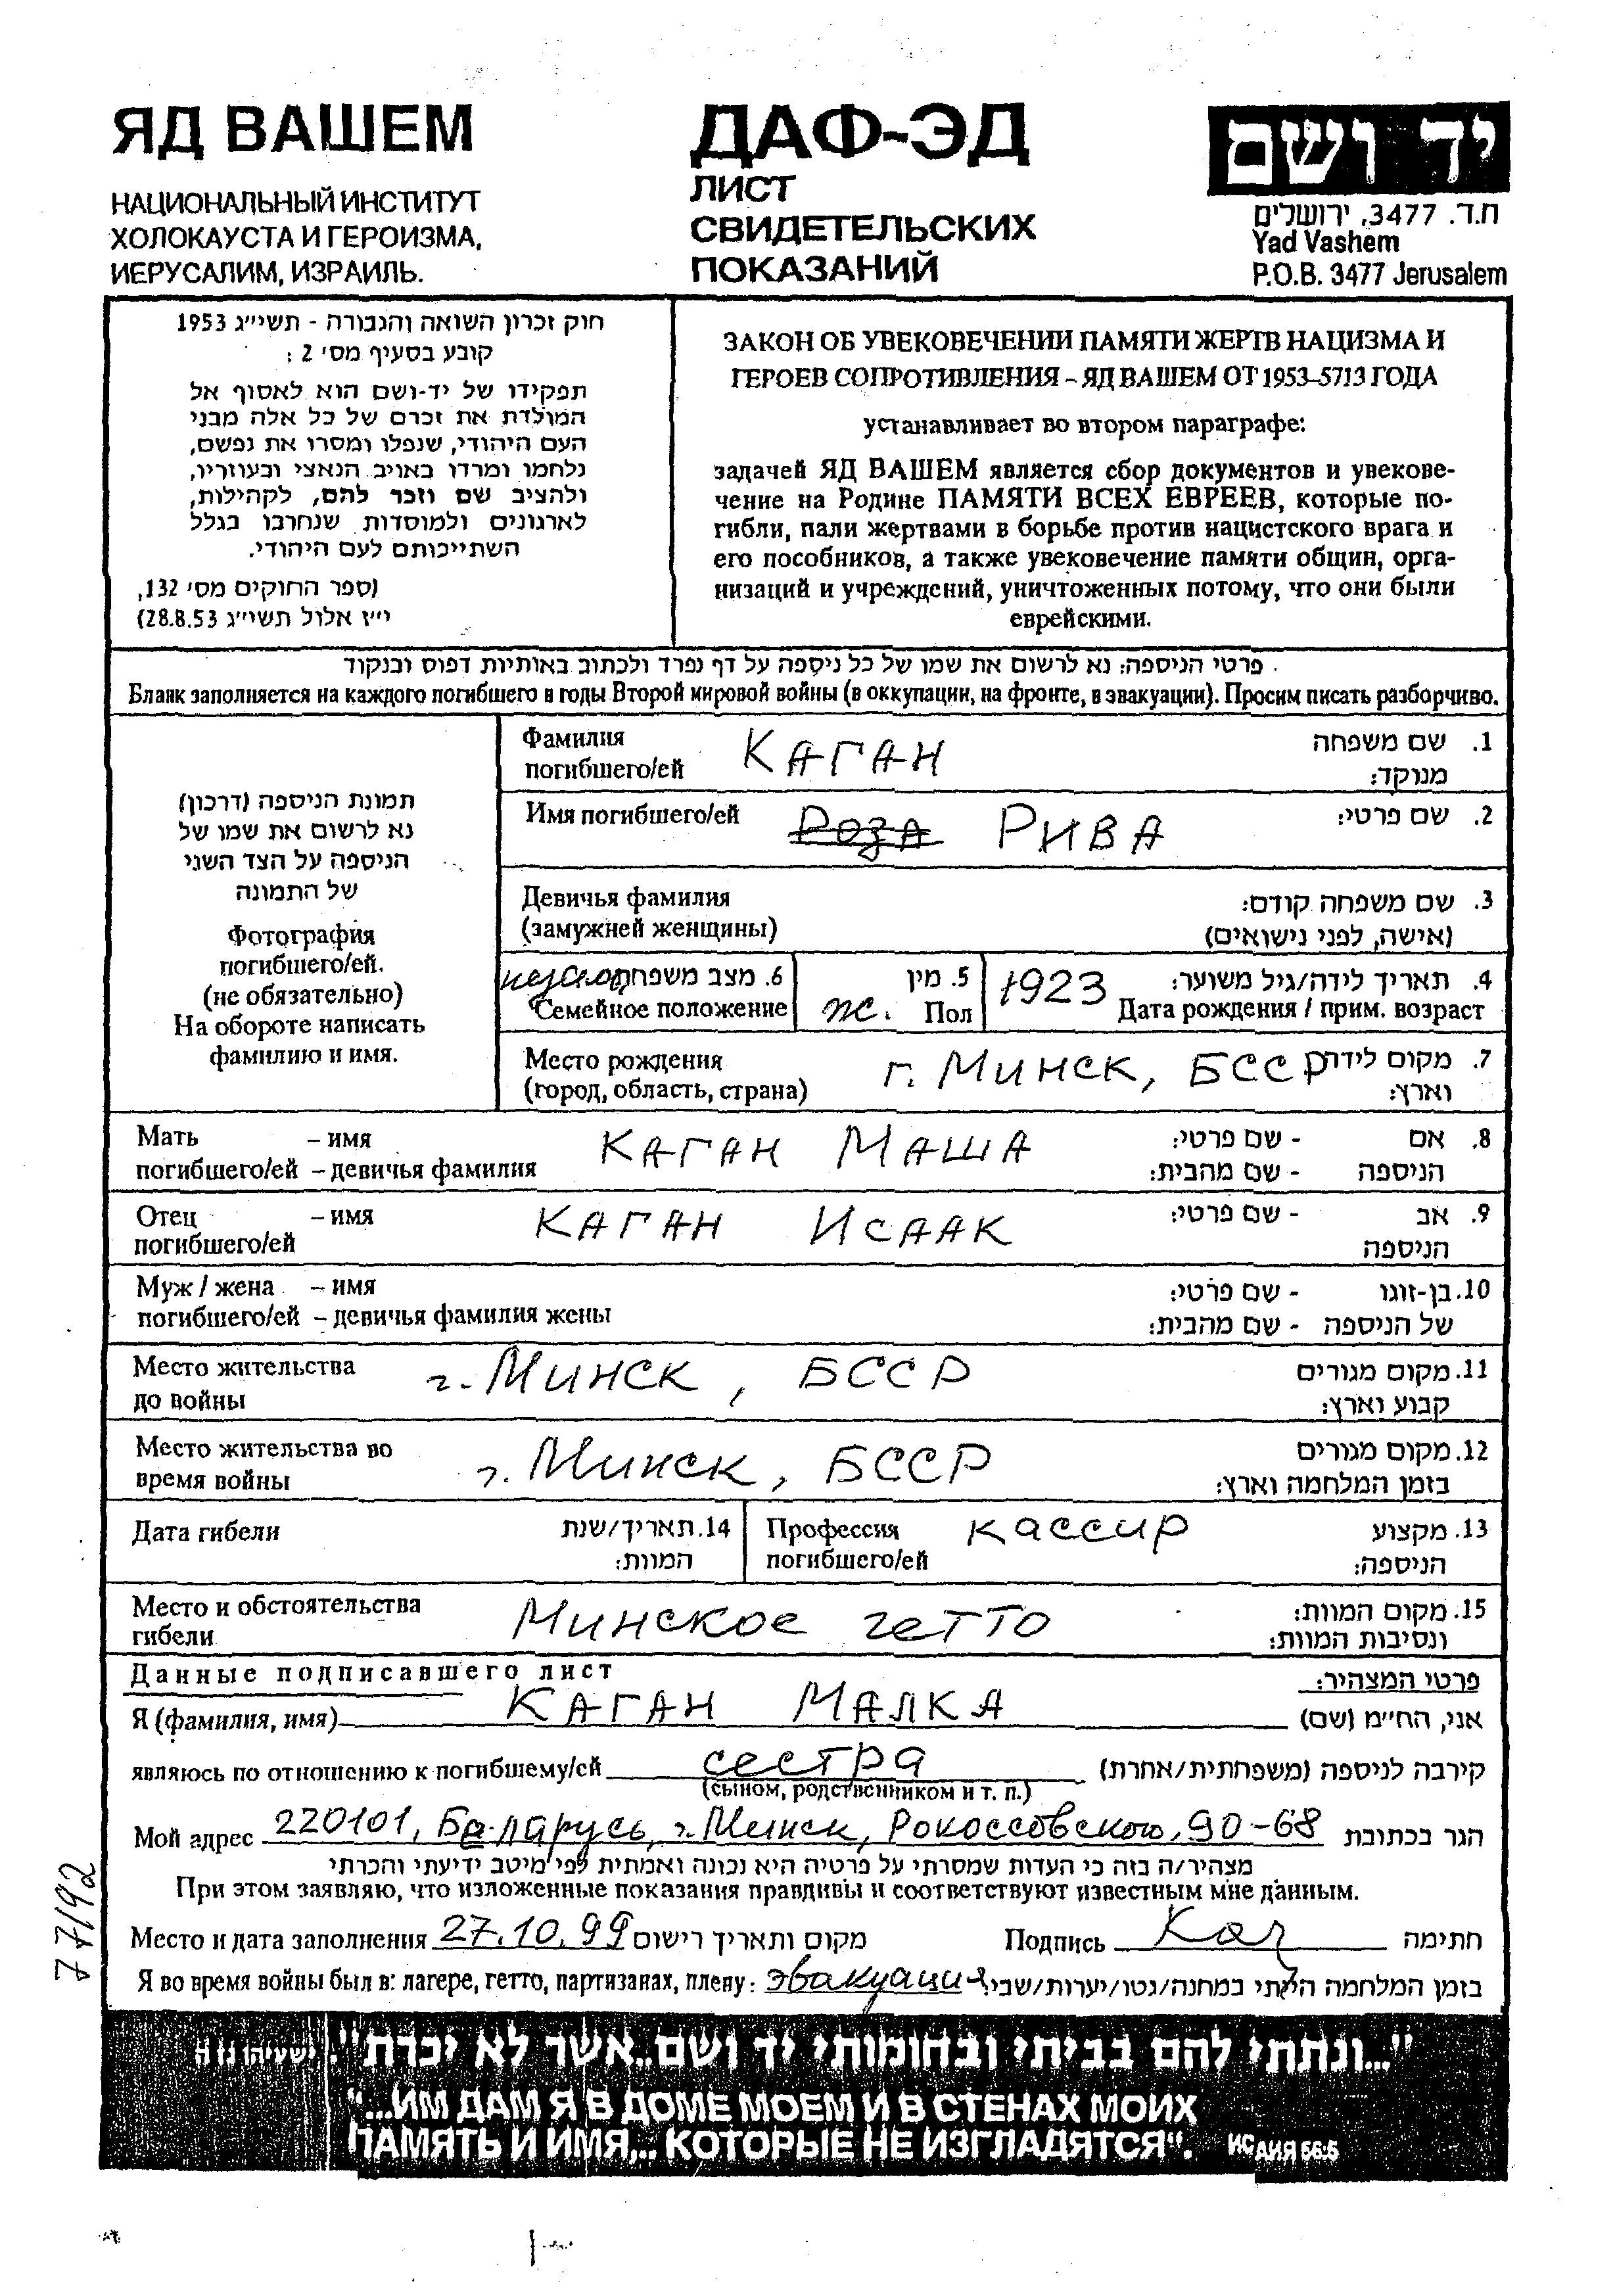 ЯД ВАШЕМ
НАЦИОНАЛЬНЫЙ ИНСТИТУТ
ХОЛОКАУСТА И ГЕРОИЗМА,
ИЕРУСАЛИМ, ИЗРАИЛЬ.
ДАФ-ЭД
ЛИСТ
СВИДЕТЕЛЬСКИХ
ПОКАЗАНИЙ
יד ושם
ת.ד. 3477, ירושלים
Yad Vashem
P.O.B. 3477 Jerusalem
חוק זכרון השואה והגבורה - תשי״ג 1953
קובע בסעיף מס׳ 2 :
תפקידו של יד-ושם הוא לאסוף אל
המולדת את זכרם של כל אלה מבני
העם היהודי, שנפלו ומסרו את נפשם,
נלחמו ומרדו באויב הנאצי ובעוזריו,
ולהציב שם וזכר להם, לקהילות,
לארגונים ולמוסדות שנחרבו בגלל
השתייכותם לעם היהודי.
(ספר החוקים מס׳ 132,
י״ז אלול תשי״ג 28.8.53)
ЗАКОН ОБ УВЕКОВЕЧЕНИИ ПАМЯТИ ЖЕРТВ НАЦИЗМА И
ГЕРОЕВ СОПРОТИВЛЕНИЯ – ЯД ВАШЕМ ОТ 1953–5713 ГОДА
устанавливает во втором параграфе:
задачей ЯД ВАШЕМ является сбор документов и увекове-
чение на Родине ПАМЯТИ ВСЕХ ЕВРЕЕВ, которые по-
гибли, пали жертвами в борьбе против нацистского врага и
его пособников, а также увековечение памяти общин, орга-
низаций и учреждений, уничтоженных потому, что они были
еврейскими.
פרטי הניספה: נא לרשום את שמו של כל ניספה על דף נפרד ולכתוב באותיות דפוס ובנקוד
Бланк заполняется на каждого погибшего в годы Второй мировой войны (в оккупации, на фронте, в эвакуации). Просим писать разборчиво.
תמונת הניספה (דרכון)
נא לרשום את שמו של
הניספה על הצד השני
של התמונה
Фотография
погибшего/ей.
(не обязательно)
На обороте написать
фамилию и имя.
Фамилия КАГАН 1. שם משפחה
погибшего/ей מנוקד:
Имя погибшего/ей Роза РИВА 2. שם פרטי:
Девичья фамилия 3. שם משפחה קודם:
(замужней женщины) (אישה, לפני נישואים)
6. מצב משפחתי 5. מין 1923 4. תאריך לידה/גיל משוער:
Семейное положение ж. Пол Дата рождения / прим. возраст
Место рождения г. Минск, БССР 7. מקום לידה
(город, область, страна) וארץ:
Мать – имя КАГАН МАША 8. אם - שם פרטי:
погибшего/ей – девичья фамилия הניספה - שם מהבית:
Отец – имя КАГАН ИСААК 9. אב - שם פרטי:
погибшего/ей הניספה
Муж / жена – имя 10. בן-זוגו - שם פרטי:
погибшего/ей – девичья фамилия жены של הניספה - שם מהבית:
Место жительства г. Минск, БССР 11. מקום מגורים
до войны קבוע וארץ:
Место жительства во г. Минск, БССР 12. מקום מגורים
время войны בזמן המלחמה וארץ:
Дата гибели 14. תאריך/שנת Профессия кассир 13. מקצוע
המוות: погибшего/ей הניספה:
Место и обстоятельства Минское гетто 15. מקום המוות:
гибели ונסיבות המוות:
Данные подписавшего лист פרטי המצהיר:
Я (фамилия, имя) КАГАН МАЛКА אני, הח״מ (שם)
являюсь по отношению к погибшему/ей сестра קירבה לניספה (משפחתית/אחרת)
(сыном, родственником и т. п.)
Мой адрес 220101, Баларусь, г. Минск, Рокоссовского, 90-68 הגר בכתובת
מצהיר/ה בזה כי העדות שמסרתי על פרטיה היא נכונה ואמתית לפי מיטב ידיעתי והכרתי
При этом заявляю, что изложенные показания правдивы и соответствуют известным мне данным.
Место и дата заполнения 27.10.99 מקום ותאריך רישום Подпись Каг חתימה
Я во время войны был в: лагере, гетто, партизанах, плену: эвакуации בזמן המלחמה הייתי במחנה/גטו/יערות/שבי:
77/92
"...ונתתי להם בביתי ובחומותי יד ושם..אשר לא יכרת" ישעיהו נו ה
"...ИМ ДАМ Я В ДОМЕ МОЕМ И В СТЕНАХ МОИХ
ПАМЯТЬ И ИМЯ... КОТОРЫЕ НЕ ИЗГЛАДЯТСЯ". ИСАИЯ 56:5